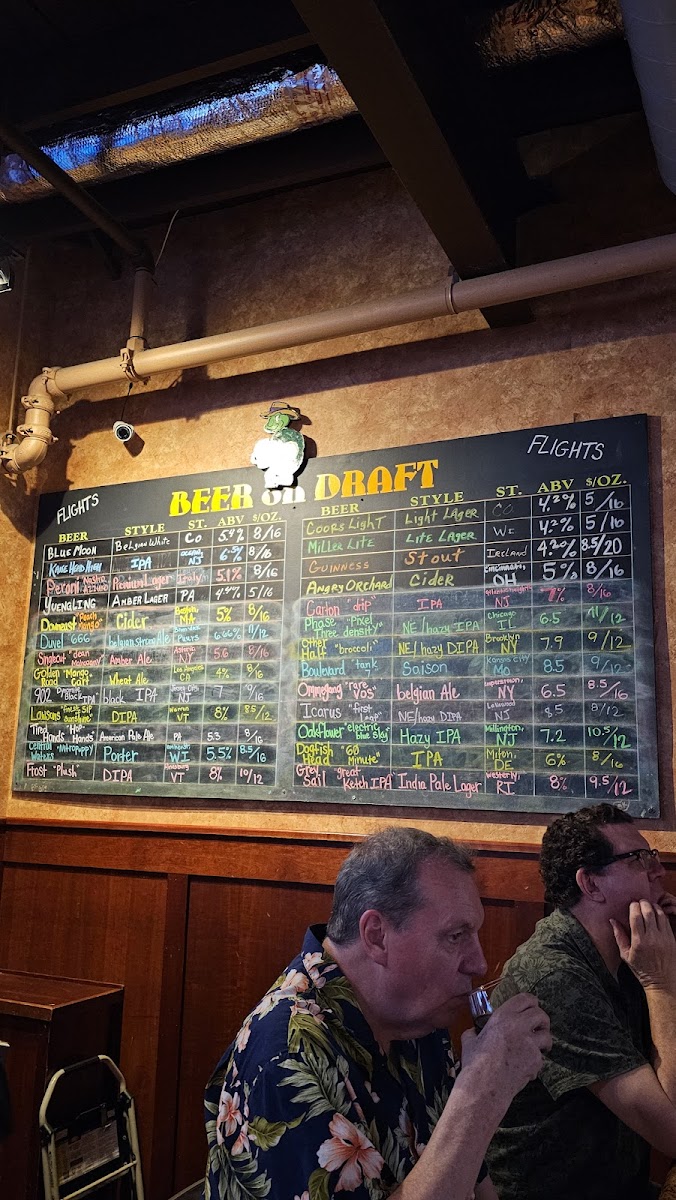 FLIGHTS
BEER on DRAFT
FLIGHTS
BEER STYLE ST. ABV $/OZ.
BLUE MOON Belgian White CO 5.4% 8/16
IPA NJ 8/16
Peroni Premium Lager Italy 5.1% 8/16
YUENGLING AMBER LAGER PA 5/16
Downeast Cider Boston, MA 5% 8/16
Duvel 666 belgian strong Ale 6.66% 11/12
Singlecut Amber Ale NY 5.6 8/16
Golden Road "Mango Cart" Wheat Ale CA 4% 8/16
902 black IPA NJ 7 9/16
Lawsons "sip of sunshine" DIPA VT 8% 8.5/12
Tired Hands "Hop Hands" American Pale Ale PA 5.3 8/16
Central Waters "Mudpuppy" Porter WI 5.5% 8.5/16
Frost "Plush" DIPA VT 8% 10/12
BEER STYLE ST. ABV $/OZ.
COORS LIGHT Light LAGER CO 4.2% 5/16
MILLER LITE LITE LAGER WI 4.2% 5/16
GUINNESS Stout IRELAND 4.20% 8.5/20
ANGRY ORCHARD Cider Cincinnati, OH 5% 8/16
Carton IPA NJ 7% 8/16
Phase Three "Pixel density" NE/hazy IPA Chicago IL 6.5 11/12
Other Half "broccoli" NE/hazy DIPA Brooklyn NY 7.9 9/12
Boulevard "tank 7" Saison Kansas City MO 8.5 9/12
Ommegang "rare vos" belgian Ale NY 6.5 8.5/16
Icarus NE/hazy DIPA Lakewood NJ 8.5 8/12
Oakflower "electric blue sky" Hazy IPA Millington, NJ 7.2 10.5/12
Dogfish Head "60 Minute" IPA Milton, DE 6% 8/16
Grey Sail "great ketch IPA" India Pale Lager Westerly, RI 8% 9.5/12